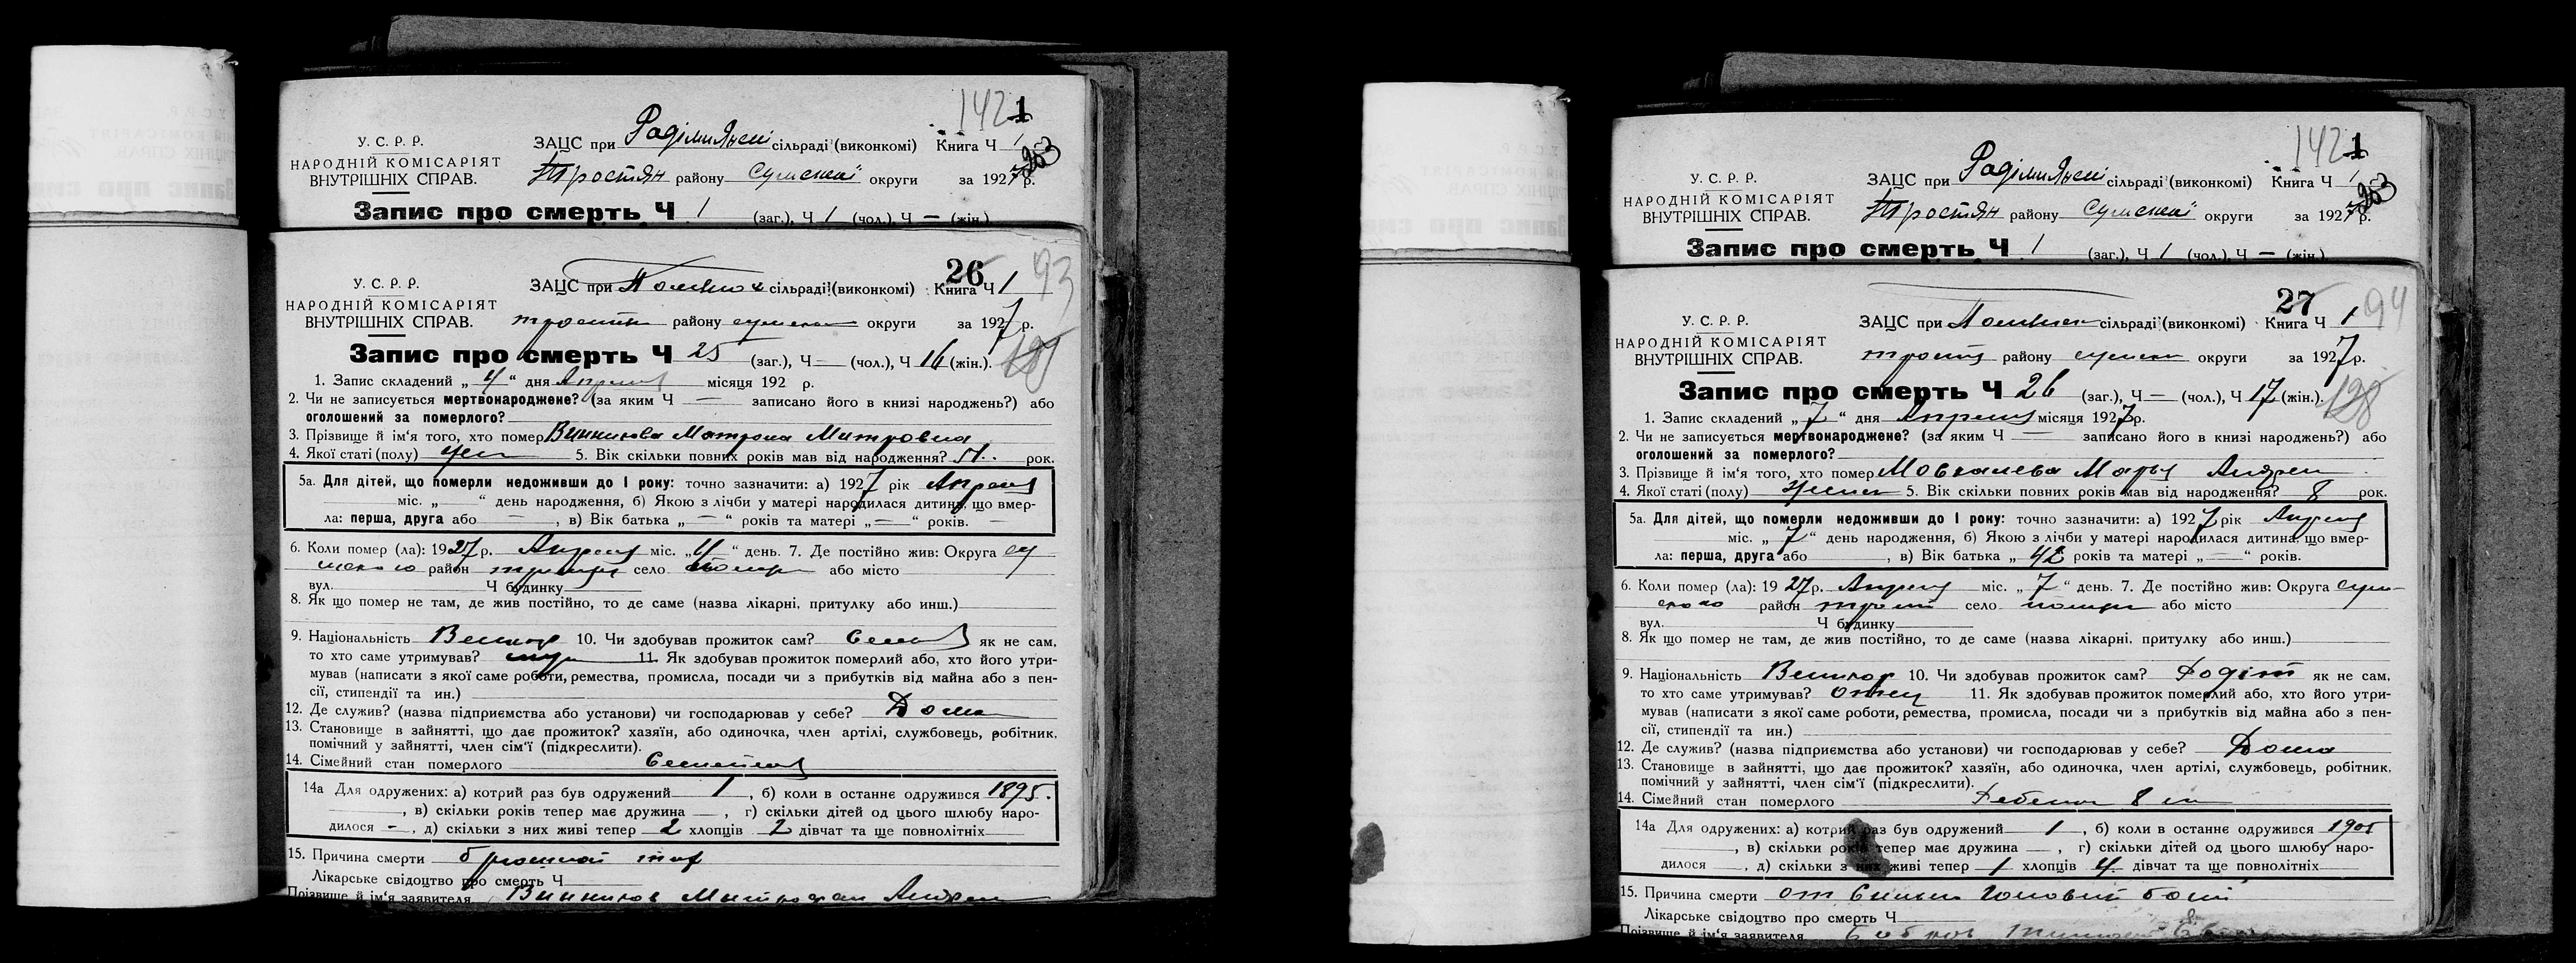 142 1
У. С. Р. Р.
НАРОДНІЙ КОМІСАРІЯТ
ВНУТРІШНІХ СПРАВ.
ЗАЦС при сільраді (виконкомі) Книга Ч 1
Тростян району Сумської округи за 1927 р.
263
Запис про смерть Ч 1 (заг.), Ч 1 (чол.), Ч — (жін.)
26 93
У. С. Р. Р.
НАРОДНІЙ КОМІСАРІЯТ
ВНУТРІШНІХ СПРАВ.
ЗАЦС при сільраді (виконкомі) Книга Ч 1
району округи за 1927 р.
Запис про смерть Ч 25 (заг.), Ч — (чол.), Ч 16 (жін.).
1. Запис складений „ 4 “ дня Апреля місяця 192 р.
2. Чи не записується мертвонароджене? (за яким Ч — записано його в книзі народжень?) або
оголошений за померлого?
3. Прізвище й ім‘я того, хто помер Винникова Матрона Митровна
4. Якої статі (полу) жен 5. Вік скільки повних років мав від народження? рок.
5а. Для дітей, що померли недоживши до 1 року: точно зазначити: а) 1927 рік Апреля
міс. „ “ день народження, б) Якою з лічби у матері народилася дитина, що вмер-
ла: перша, друга або — , в) Вік батька „ — “ років та матері „ — “ років. —
6. Коли помер (ла): 1927 р. Апреля міс. „ 4 “ день. 7. Де постійно жив: Округа Су
район село або місто
вул. Ч будинку
8. Як що помер не там, де жив постійно, то де саме (назва лікарні, притулку або инш.)
9. Національність Великор 10. Чи здобував прожиток сам? як не сам,
то хто саме утримував? муж 11. Як здобував прожиток померлий або, хто його утри-
мував (написати з якої саме роботи, ремества, промисла, посади чи з прибутків від майна або з пен-
сії, стипендії та ин.)
12. Де служив? (назва підприємства або установи) чи господарював у себе? Дома
13. Становище в зайнятті, що дає прожиток? хазяїн, або одиночка, член артілі, службовець, робітник,
помічний у зайнятті, член сім‘ї (підкреслити).
14. Сімейний стан померлого
14а Для одружених: а) котрий раз був одружений 1 , б) коли в останнє одружився 1895.
, в) скільки років тепер має дружина — , г) скільки дітей од цього шлюбу наро-
дилося - , д) скільки з них живі тепер 2 хлопців 2 дівчат та ще повнолітніх
15. Причина смерти брюшной тиф
Лікарське свідоцтво про смерть Ч
Прізвище й ім‘я заявителя Винников Митрофан Андреи
142 1
У. С. Р. Р.
НАРОДНІЙ КОМІСАРІЯТ
ВНУТРІШНІХ СПРАВ.
ЗАЦС при сільраді (виконкомі) Книга Ч 1
Тростян району Сумської округи за 1927 р.
263
Запис про смерть Ч 1 (заг.), Ч 1 (чол.), Ч — (жін.)
27 94
У. С. Р. Р.
НАРОДНІЙ КОМІСАРІЯТ
ВНУТРІШНІХ СПРАВ.
ЗАЦС при сільраді (виконкомі) Книга Ч 1
району округи за 1927 р.
Запис про смерть Ч 26 (заг.), Ч — (чол.), Ч 17 (жін.).
1. Запис складений „ 7 “ дня Апреля місяця 1927 р.
2. Чи не записується мертвонароджене? (за яким Ч — записано його в книзі народжень?) або
оголошений за померлого?
3. Прізвище й ім‘я того, хто помер Марья Андреи
4. Якої статі (полу) 5. Вік скільки повних років мав від народження? 8 рок.
5а. Для дітей, що померли недоживши до 1 року: точно зазначити: а) 1927 рік Апреля
міс. „ 7 “ день народження, б) Якою з лічби у матері народилася дитина, що вмер-
ла: перша, друга або , в) Вік батька „ 42 років та матері „ — “ років.
6. Коли помер (ла): 1927 р. Апреля міс. „ 7 “ день. 7. Де постійно жив: Округа
район село або місто
вул. Ч будинку
8. Як що помер не там, де жив постійно, то де саме (назва лікарні, притулку або инш.)
9. Національність Великор 10. Чи здобував прожиток сам? як не сам,
то хто саме утримував? отец 11. Як здобував прожиток померлий або, хто його утри-
мував (написати з якої саме роботи, ремества, промисла, посади чи з прибутків від майна або з пен-
сії, стипендії та ин.)
12. Де служив? (назва підприємства або установи) чи господарював у себе? Дома
13. Становище в зайнятті, що дає прожиток? хазяїн, або одиночка, член артілі, службовець, робітник,
помічний у зайнятті, член сім‘ї (підкреслити).
14. Сімейний стан померлого 8
14а Для одружених: а) котрий раз був одружений 1 , б) коли в останнє одружився
, в) скільки років тепер має дружина — , г) скільки дітей од цього шлюбу наро-
дилося , д) скільки з них живі тепер 1 хлопців 4 дівчат та ще повнолітніх
15. Причина смерти от головной боли
Лікарське свідоцтво про смерть Ч
Прізвище й ім‘я заявителя